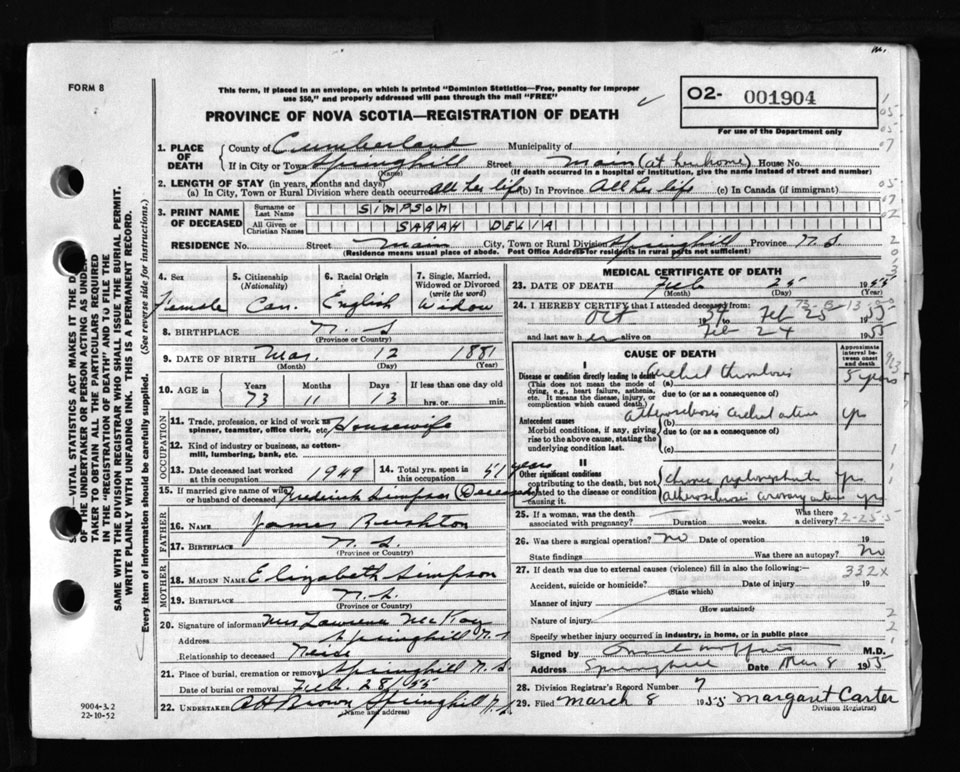 m.
FORM 8
This form, if placed in an envelope, on which is printed "Dominion Statistics—Free, penalty for improper
use $50," and properly addressed will pass through the mail "FREE"
PROVINCE OF NOVA SCOTIA—REGISTRATION OF DEATH
O2- 001904
For use of the Department only
1. PLACE OF DEATH
County of Cumberland Municipality of
If in City or Town Springhill Street Main (at her home) House No.
(Name) (If death occurred in a hospital or institution, give the name instead of street and number)
2. LENGTH OF STAY (in years, months and days)
(a) In City, Town or Rural Division where death occurred all her life (b) In Province All her life (c) In Canada (if immigrant)
3. PRINT NAME OF DECEASED
Surname or Last Name SIMPSON
All Given or Christian Names SARAH DELIA
RESIDENCE No. Street Main City, Town or Rural Division Springhill Province N.S.
(Residence means usual place of abode. Post Office Address for residents in rural parts not sufficient)
4. Sex Female
5. Citizenship (Nationality) Can.
6. Racial Origin English
7. Single, Married, Widowed or Divorced (write the word) Widow
8. BIRTHPLACE N.S
(Province or Country)
9. DATE OF BIRTH Mar. 12 1881
(Month) (Day) (Year)
10. AGE in Years 73 Months 11 Days 13 If less than one day old
hrs. or min.
OCCUPATION
11. Trade, profession, or kind of work as spinner, teamster, office clerk, etc. Housewife
12. Kind of industry or business, as cotton-mill, lumbering, bank, etc.
13. Date deceased last worked at this occupation 1949
14. Total yrs. spent in this occupation 51 years
15. If married give name of wife or husband of deceased Frederick Simpson (Deceased)
FATHER
16. NAME James Rushton
17. BIRTHPLACE N.S.
(Province or Country)
MOTHER
18. MAIDEN NAME Elizabeth Simpson
19. BIRTHPLACE N.S.
(Province or Country)
20. Signature of informant Mrs Lawrence McKay
Address Springhill N.S
Relationship to deceased Neice
21. Place of burial, cremation or removal Springhill N.S.
Date of burial or removal Feb. 28/55
22. UNDERTAKER A H Brown Springhill N.S.
(Name and address)
MEDICAL CERTIFICATE OF DEATH
23. DATE OF DEATH Feb 25 1955
(Month) (Day) (Year)
24. I HEREBY CERTIFY that I attended deceased from:
Oct Feb 25 1955
and last saw her alive on Feb 24 1955
CAUSE OF DEATH
Approximate interval between onset and death
I
Disease or condition directly leading to death
(This does not mean the mode of dying, e.g., heart failure, asthenia, etc. It means the disease, injury, or complication which caused death.)
(a) Cerebral thrombosis 5 years
due to (or as a consequence of)
Antecedent causes
Morbid conditions, if any, giving rise to the above cause, stating the underlying condition last.
(b) cerebral yrs
due to (or as a consequence of)
(c)
II
Other significant conditions contributing to the death, but not related to the disease or condition causing it.
chronic yrs
coronary yrs
25. If a woman, was the death associated with pregnancy? Duration weeks. Was there a delivery?
2-25 5
26. Was there a surgical operation? No Date of operation 19
State findings Was there an autopsy? No
27. If death was due to external causes (violence) fill in also the following:— 332X
Accident, suicide or homicide? Date of injury 19
(State which)
Manner of injury
(How sustained)
Nature of injury
Specify whether injury occurred in industry, in home, or in public place
Signed by M.D.
Address Springhill Date Mar 8 1955
28. Division Registrar's Record Number 7
29. Filed March 8 1955 Margaret Carter
Division Registrar
VITAL STATISTICS ACT MAKES IT THE
OF THE UNDERTAKER OR PERSON ACTING AS
TAKER TO OBTAIN ALL THE PARTICULARS REQUIRED
IN THE "REGISTRATION OF DEATH" AND TO FILE THE
SAME WITH THE DIVISION REGISTRAR WHO SHALL ISSUE THE BURIAL PERMIT.
WRITE PLAINLY WITH UNFADING INK. THIS IS A PERMANENT RECORD.
Every item of information should be carefully supplied. (See reverse side for instructions.)
9004-3.2
22-10-52